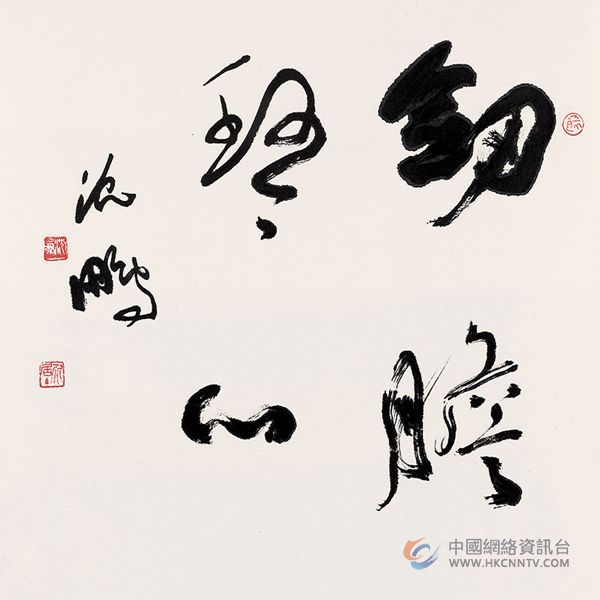 劒膽
琴心
沈鵬
中國網絡資訊台
WWW.HKCNNTV.COM